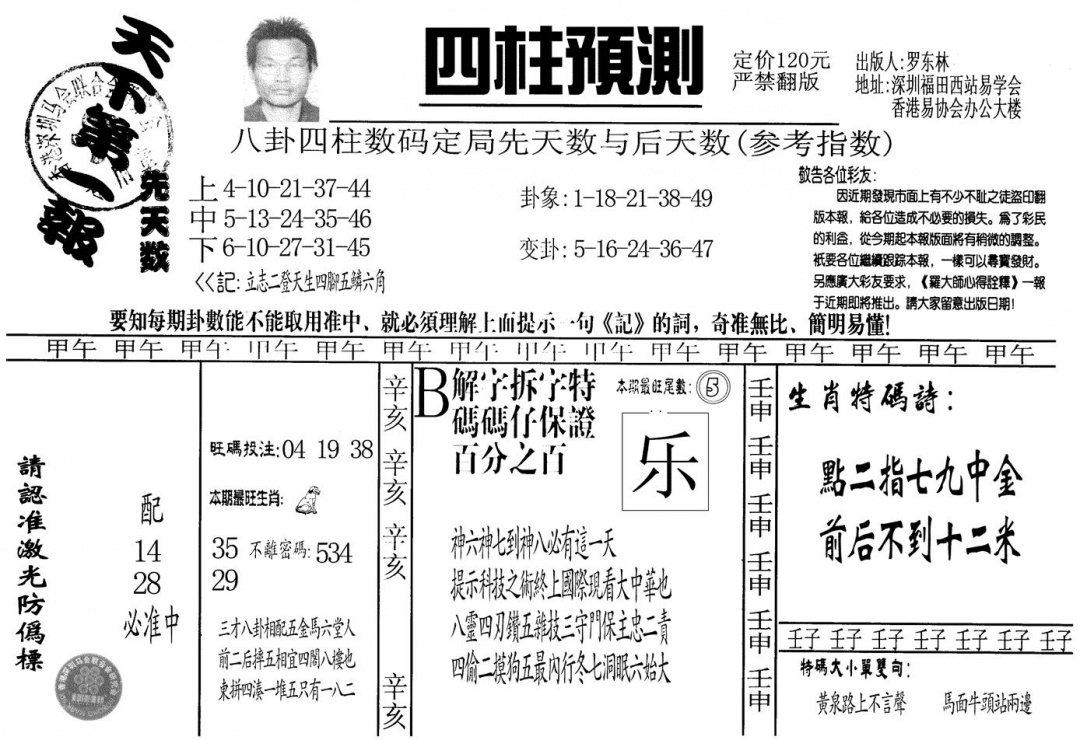 天下第一報
四柱預測
定价120元
严禁翻版
出版人:罗东林
地址:深圳福田西站易学会
香港易协会办公大楼
八卦四柱数码定局先天数与后天数(参考指数)
先天数
上 4-10-21-37-44
中 5-13-24-35-46
下 6-10-27-31-45
<<記:立志二登天生四腳五鱗六角
卦象:1-18-21-38-49
变卦:5-16-24-36-47
敬告各位彩友:
因近期發現市面上有不少不耻之徒盜印翻
版本報,給各位造成不必要的損失。爲了彩民
的利益,從今期起本報版面將有稍微的調整。
衹要各位繼續跟踪本報,一樣可以尋寶發財。
另應廣大彩友要求,《羅大師心得詮釋》一報
于近期即將推出。請大家留意出版日期!
要知每期卦數能不能取用准中、就必須理解上面提示一句《記》的詞,奇准無比、簡明易懂!
甲午 甲午 甲午 甲午 甲午 甲午 甲午 甲午 甲午 甲午 甲午 甲午 甲午 甲午 甲午
請認准激光防僞標
配
14
28
必准中
旺碼投注:04 19 38
本期最旺生肖:
35 不離密碼:534
29
三才八卦相配五金馬六堂人
前二后摔五相宜四閣八摟也
東拼四湊一堆五只有一八二
辛亥
辛亥
辛亥
辛亥
B
解字拆字特
碼碼仔保證
百分之百
本期最旺尾數:5
乐
神六神七到神八必有這一天
提示科技之術終上國際現看大中華也
八靈四刃鑽五雜技三守門保主忠二責
四偷二摸狗五最內行冬七洞眠六始大
壬申
壬申
壬申
壬申
壬申
壬申
生肖特碼詩:
點二指七九中金
前后不到十二米
壬子 壬子 壬子 壬子 壬子 壬子 壬子
特碼大小單雙句:
黄泉路上不言聲 馬面牛頭站兩邊